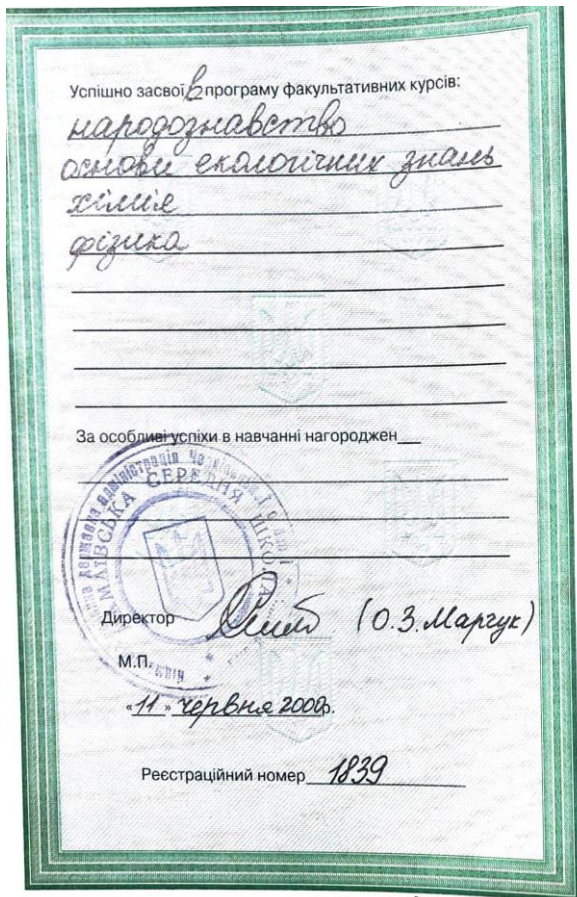 Успішно засвоїв програму факультативних курсів:
народознавство
основи екологічних знань
хімія
фізика
За особливі успіхи в навчанні нагороджен
державна адміністрація
СЕРЕДНЯ ШКОЛА
Директор (О.З. Марчук)
М.П.
«11» червня 2000р.
Реєстраційний номер 1839